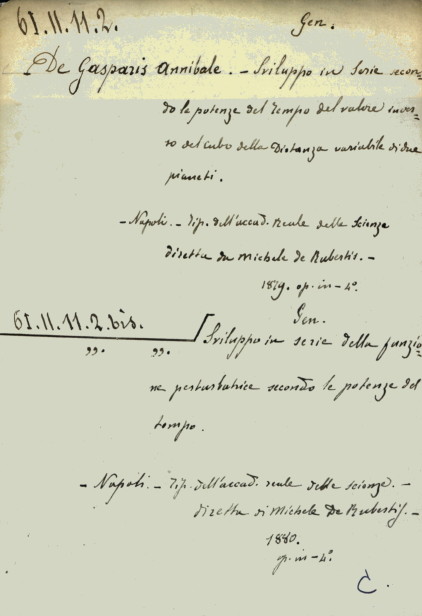 61.11.11.2.
Gen.
De Gasparis Annibale. - Sviluppo in serie secon-
do le potenze del tempo del valore inver-
so del cubo della distanza variabile di due
pianeti.
- Napoli. - Tip. dell'accad. Reale delle Scienze
diretta da Michele De Rubertis. -
1879. op. in-4°.
61.11.11.2.bis.
Gen.
,,. ,,. Sviluppo in serie della funzio-
ne perturbatrice secondo le potenze del
tempo.
- Napoli. - Tip. dell'accad. reale delle scienze. -
diretta di Michele De Rubertis. -
1880.
op. in-4°.
C.